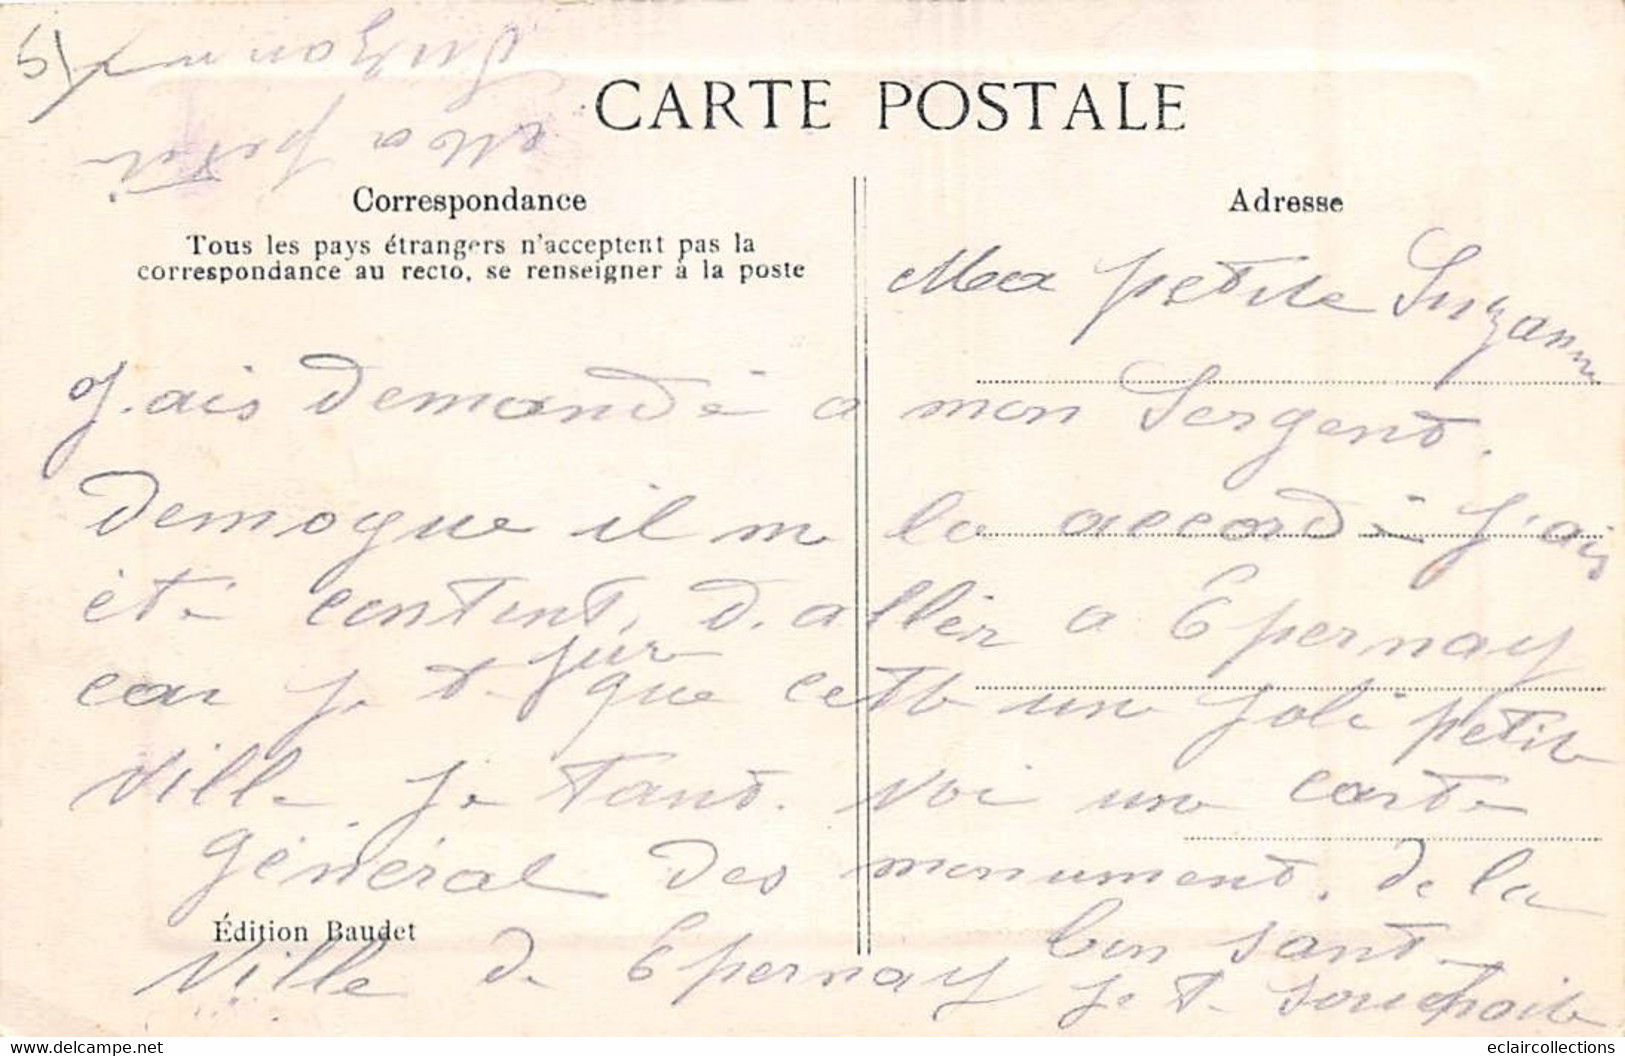 Suzanne
Ma petite
CARTE POSTALE
Correspondance
Adresse
Tous les pays étrangers n'acceptent pas la
correspondance au recto, se renseigner à la poste
Ma petite Suzanne
J.ais demandé a mon Sergent.
Demogue il me la accordé j'ais
été content, d.allér a Epernay
car je te jure que cette une joli petite
ville je tand. voi une carte
général des monument. de la
Édition Baudet
ville de Epernay bon sant
je te souchaite
eclaircollections
www.delcampe.net